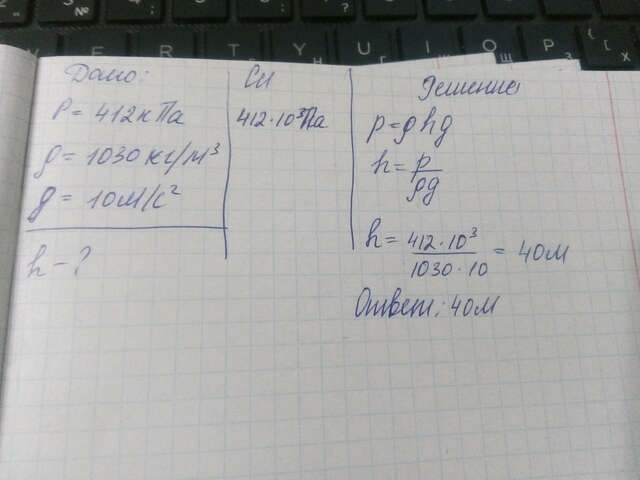 2 № 3
E R T Y U I O P
Г Ш Щ З Х
Дано:
P = 412 кПа
ρ = 1030 кг/м³
g = 10 м/с²
h - ?
Си
412·10³Па
Решение
p = ρhg
h = p/ρg
h = 412·10³/1030·10 = 40м
Ответ: 40м